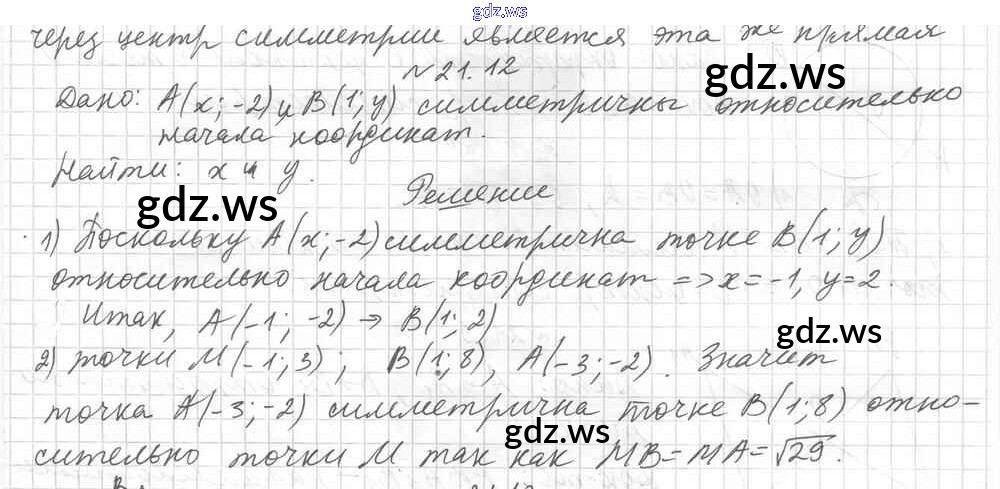 gdz.ws
через центр симметрии является эта же прямая
№21.12
Дано: A(x;-2) и B(1;y) симметричны относительно
начала координат.
Найти: x и y.
Решение
gdz.ws
1) Поскольку A(x;-2) симметрична точке B(1;y)
относительно начала координат => x=-1, y=2.
Итак, A(-1;-2) → B(1;2)
gdz.ws
2) точки M(-1;3); B(1;8), A(-3;-2). Значит
точка A(-3;-2) симметрична точке B(1;8) отно-
gdz.ws
сительно точки M. так как MB=MA=√29.